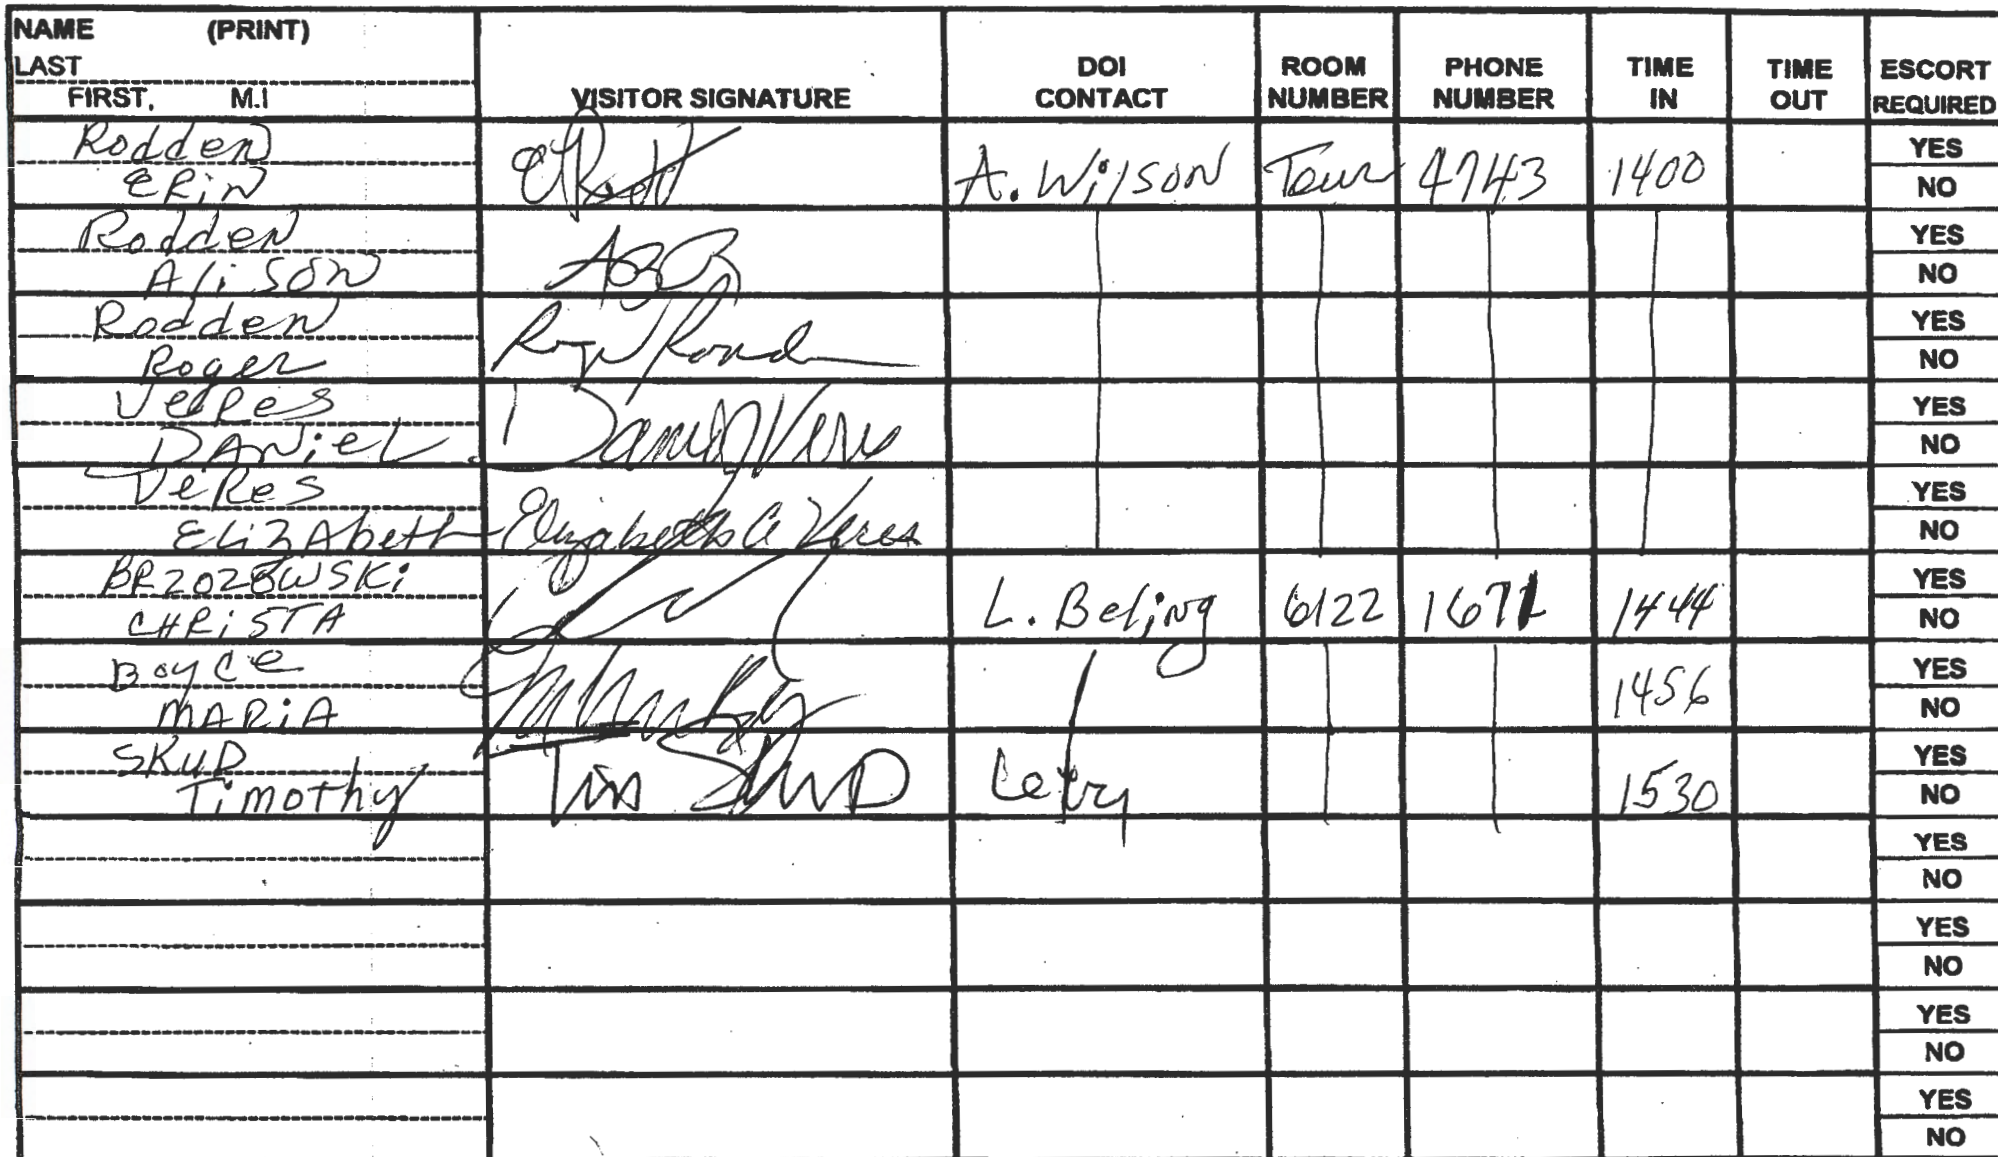 NAME (PRINT)
LAST
FIRST, M.I
VISITOR SIGNATURE
DOI
CONTACT
ROOM
NUMBER
PHONE
NUMBER
TIME
IN
TIME
OUT
ESCORT
REQUIRED
Rodden
ERiN
A. WilSON
Tour
4743
1400
YES
NO
Rodden
AliSON
YES
NO
Rodden
Roger
YES
NO
VeRes
DANieL
YES
NO
VeRes
ELiZAbeth
Elizabeth A Veres
YES
NO
BRZOZOWSKi
CHRiSTA
L. Beljng
6122
1671
1444
YES
NO
Boyce
MARiA
1456
YES
NO
SKUD
Timothy
Tim SKUD
1530
YES
NO
YES
NO
YES
NO
YES
NO
YES
NO